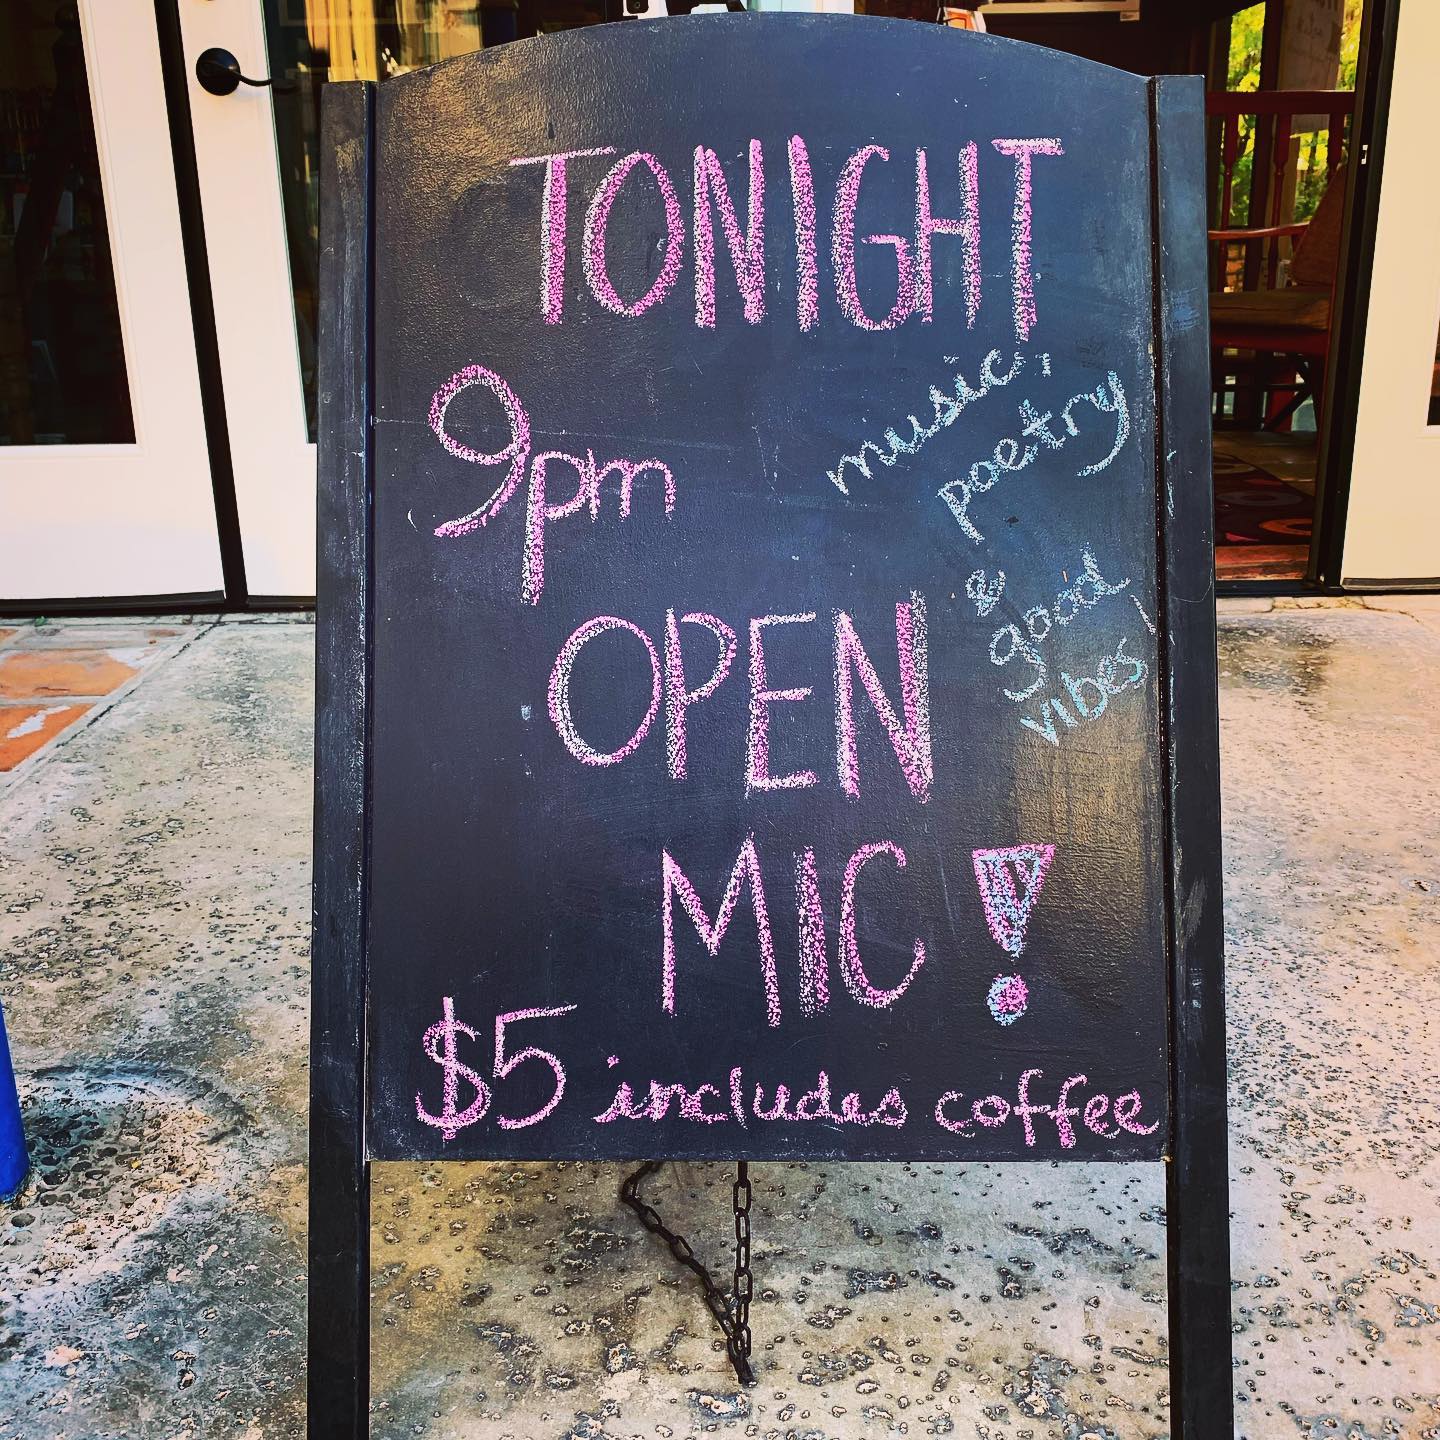 TONIGHT
9pm
music,
poetry
&
good
vibes!
OPEN
MIC!
$5 includes coffee